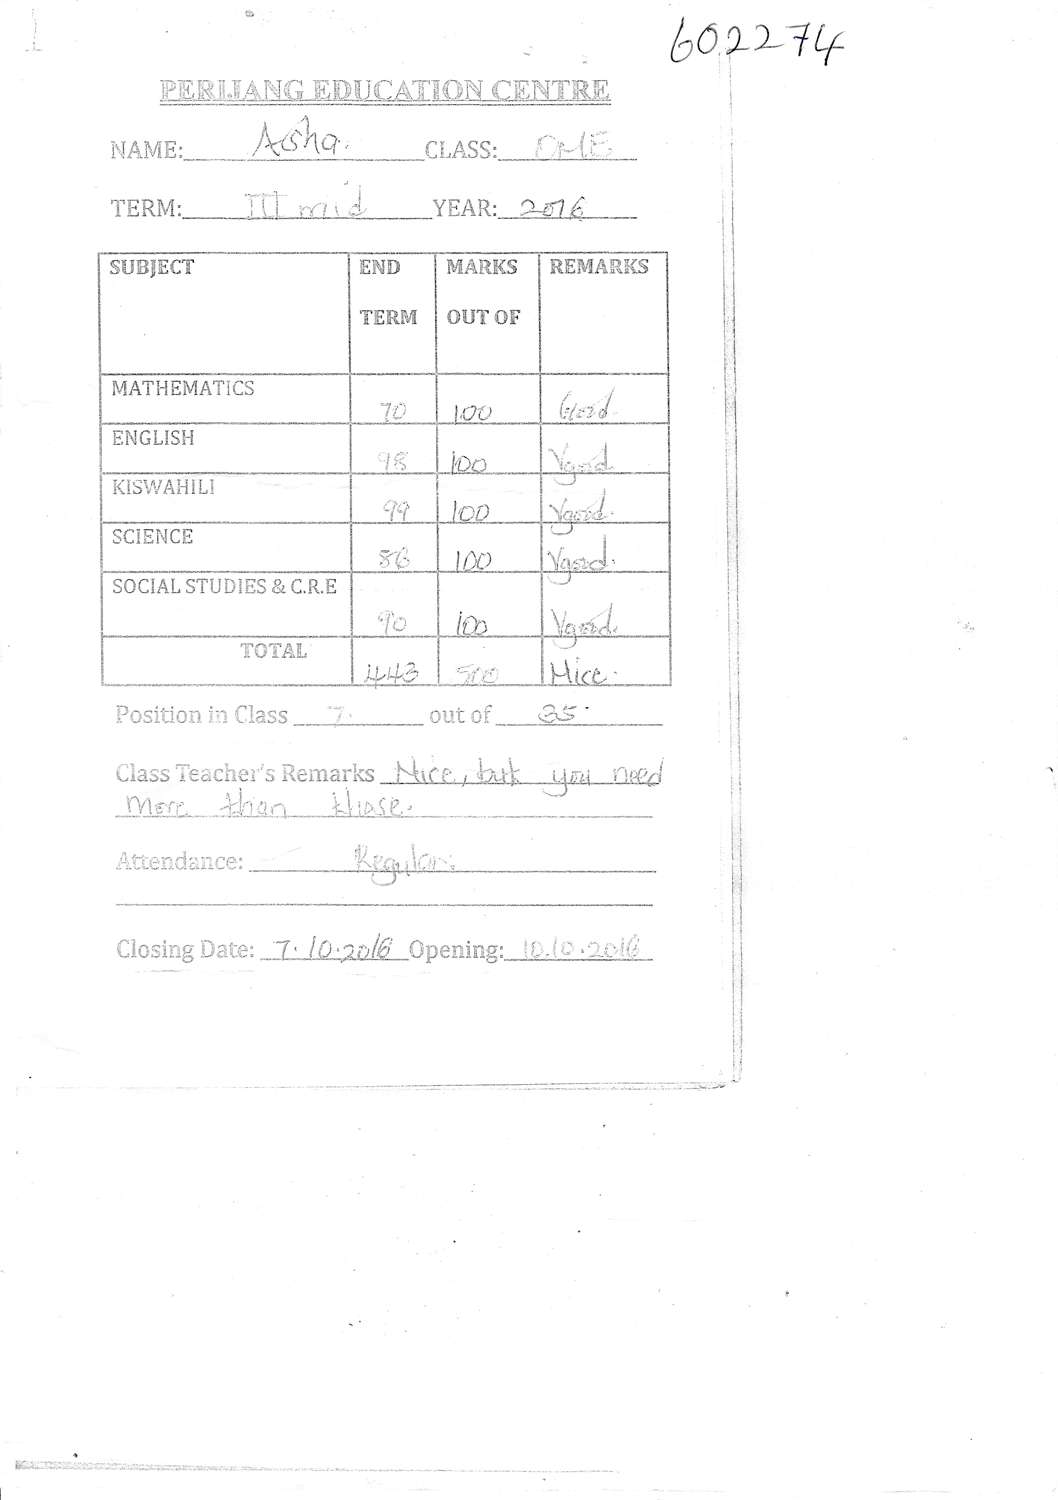 602274
PERIJANG EDUCATION CENTRE
NAME: Asha. CLASS: ONE
TERM: III mid YEAR: 2016
SUBJECT END TERM MARKS OUT OF REMARKS
MATHEMATICS 70 100 Good.
ENGLISH 98 100 Vgood
KISWAHILI 99 100 Vgood.
SCIENCE 86 100 Vgood.
SOCIAL STUDIES & C.R.E 90 100 Vgood.
TOTAL 443 500 Nice.
Position in Class 7. out of 35.
Class Teacher's Remarks Nice, but you need
more than those.
Attendance: Regular.
Closing Date: 7.10.2016 Opening: 10.10.2016